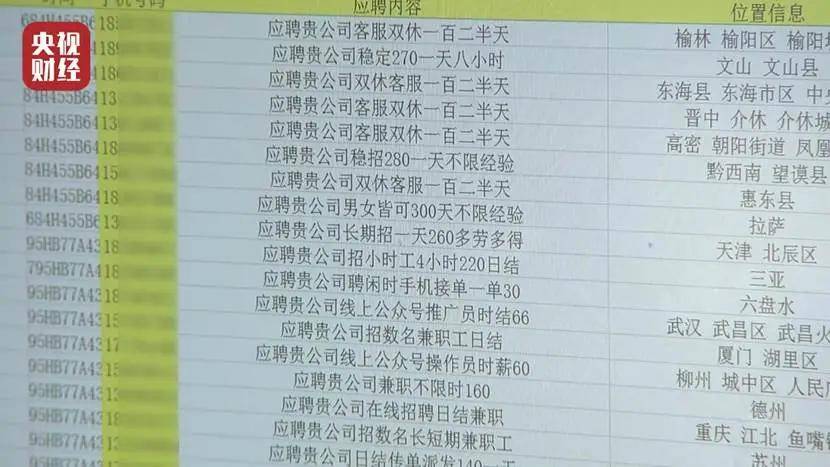 央视财经
手机号码 应聘内容 位置信息
684H455B6 18 应聘贵公司客服双休一百二半天 榆林 榆阳区 榆阳
84H455B64 189 应聘贵公司稳定270一天八小时 文山 文山县
84H455B64 18 应聘贵公司双休客服一百二半天 东海县 东海市区
84H455B64 13 应聘贵公司客服双休一百二半天 晋中 介休 介休城
84H455B64 应聘贵公司客服双休一百二半天 高密 朝阳街道 凤凰
84H455B64 15 应聘贵公司稳招280一天不限经验 黔西南 望谟县
84H455B64 应聘贵公司双休客服一百二半天 惠东县
684H455B6 13 应聘贵公司男女皆可300天不限经验 拉萨
95HB77A43 应聘贵公司长期招一天260多劳多得 天津 北辰区
795HB77A4 18 应聘贵公司招小时工4小时220日结 三亚
95HB77A43 应聘贵公司聘闲时手机接单一单30 六盘水
95HB77A43 应聘贵公司线上公众号推广员时结66 武汉 武昌区 武昌火
95HB77A43 应聘贵公司招数名兼职工日结 厦门 湖里区
95HB77A43 应聘贵公司线上公众号操作员时薪60 柳州 城中区 人民
95HB77A43 应聘贵公司兼职不限时160 德州
95HB77A43 应聘贵公司在线招聘日结兼职 重庆 江北 鱼嘴镇
95HB77A43 应聘贵公司招数名长短期兼职工 苏州
应聘贵公司日结传单派发140一天